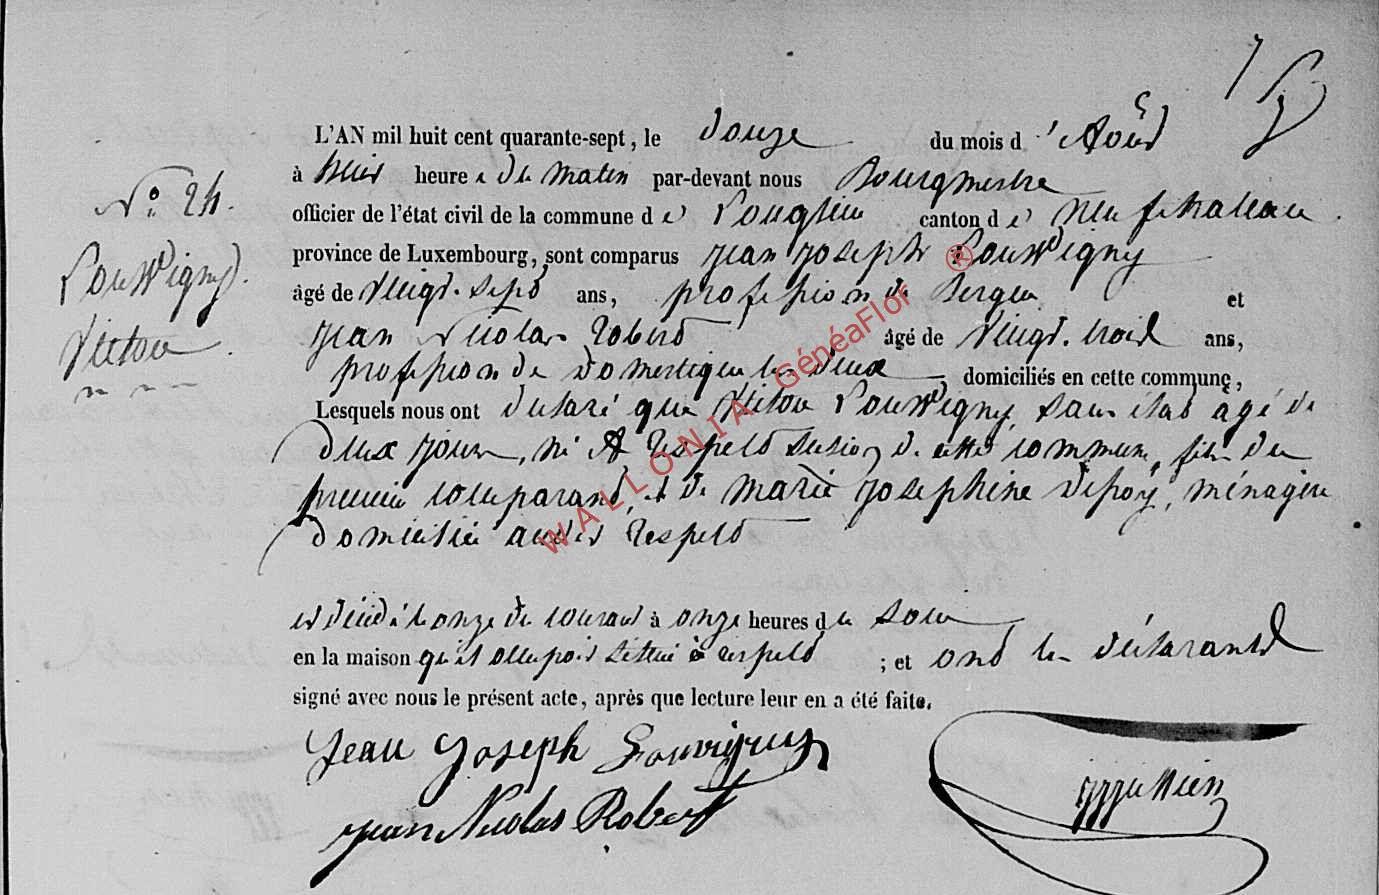 L'AN mil huit cent quarante-sept, le douze du mois d'Août
N° 24.
à huit heures du matin par-devant nous Bourgmestre
officier de l'état civil de la commune de Longlier canton de Neufchateau.
Louvvigny
Victor
province de Luxembourg, sont comparus Jean Joseph Louvvigny
âgé de Vingt-sept ans, profession de Berger et
Jean Nicolas Robert âgé de Vingt-trois ans,
profession de Domestique les deux domiciliés en cette commune,
Lesquels nous ont déclaré que Victor Louvvigny, sans état âgé de
deux jours, né à Respelt section de cette commune, fils du
premier comparant, et de Marie Josephine Depoy, ménagère
domiciliée audit Respelt
est décédé le onze du courant à onze heures du soir
en la maison qu'il occupoit située à respelt ; et ont les déclarants
signé avec nous le présent acte, après que lecture leur en a été faite.
Jean Joseph Louvigny
Jean Nicolas Robert
WALLONIA GénéaFlor ®